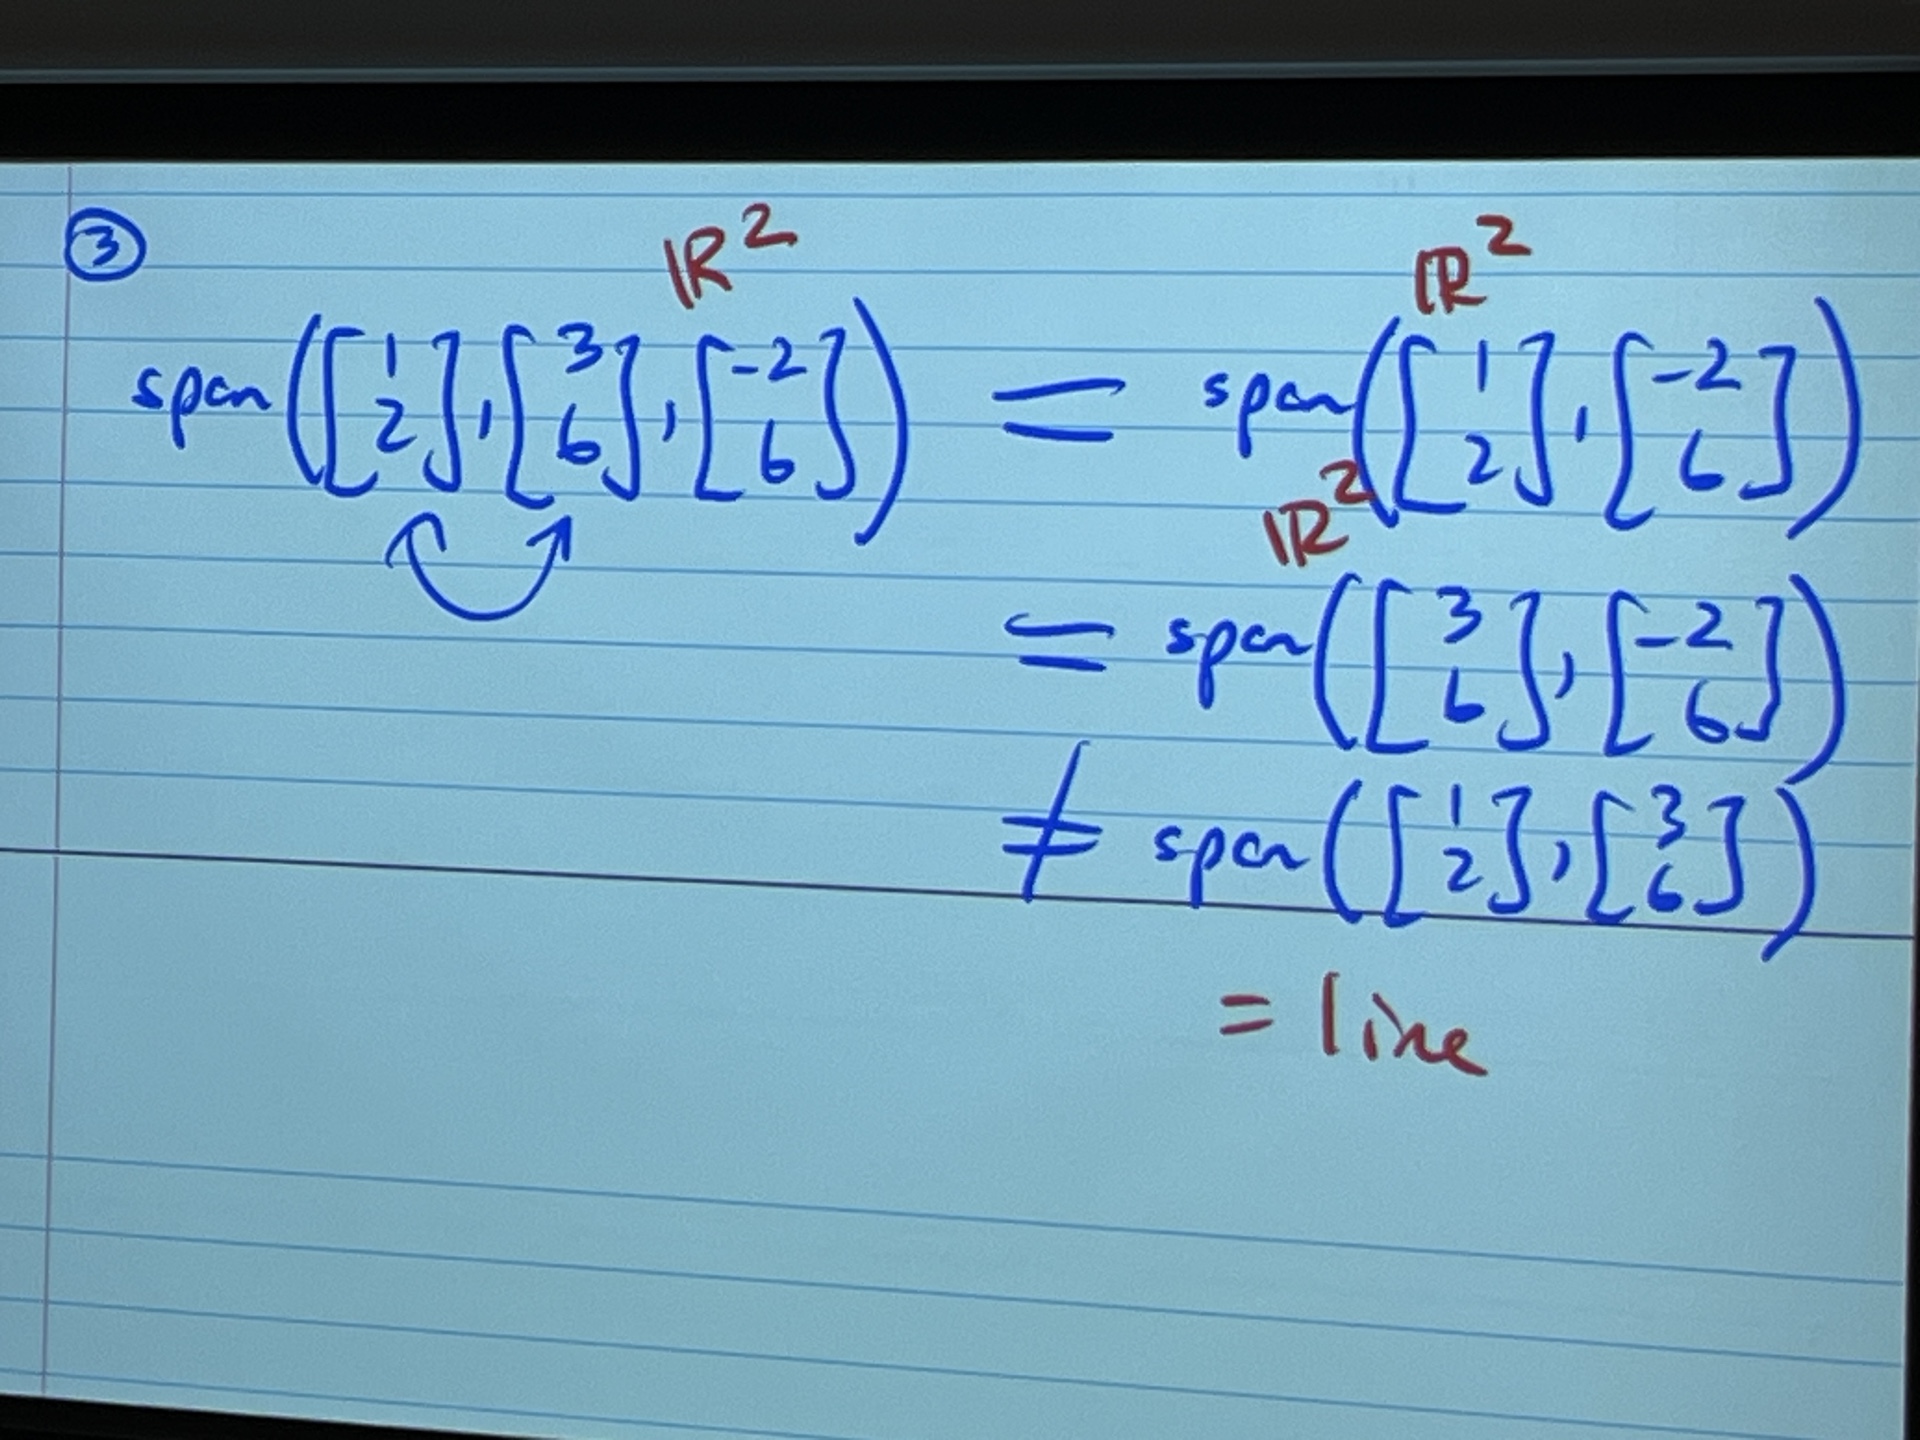 ③
ℝ² ℝ²
span([1 2], [3 6], [-2 6]) = span([1 2], [-2 6])
ℝ²
= span([3 6], [-2 6])
≠ span([1 2], [3 6])
= line